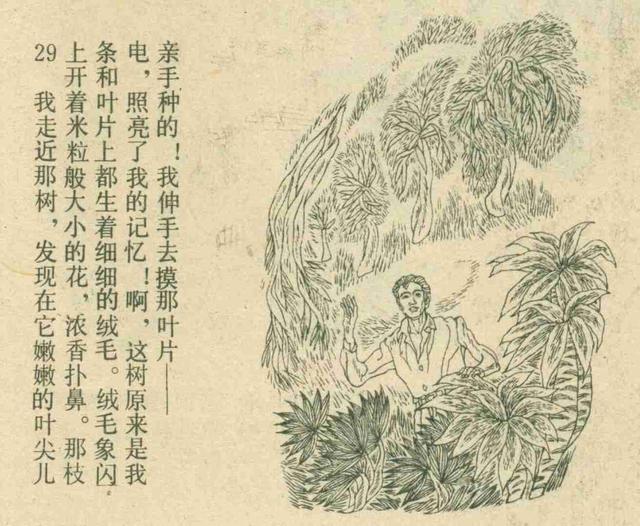 29 我走近那树，发现在它嫩嫩的叶尖儿
上开着米粒般大小的花，浓香扑鼻。那枝
条和叶片上都生着细细的绒毛。绒毛象闪
电，照亮了我的记忆！啊，这树原来是我
亲手种的！我伸手去摸那叶片——